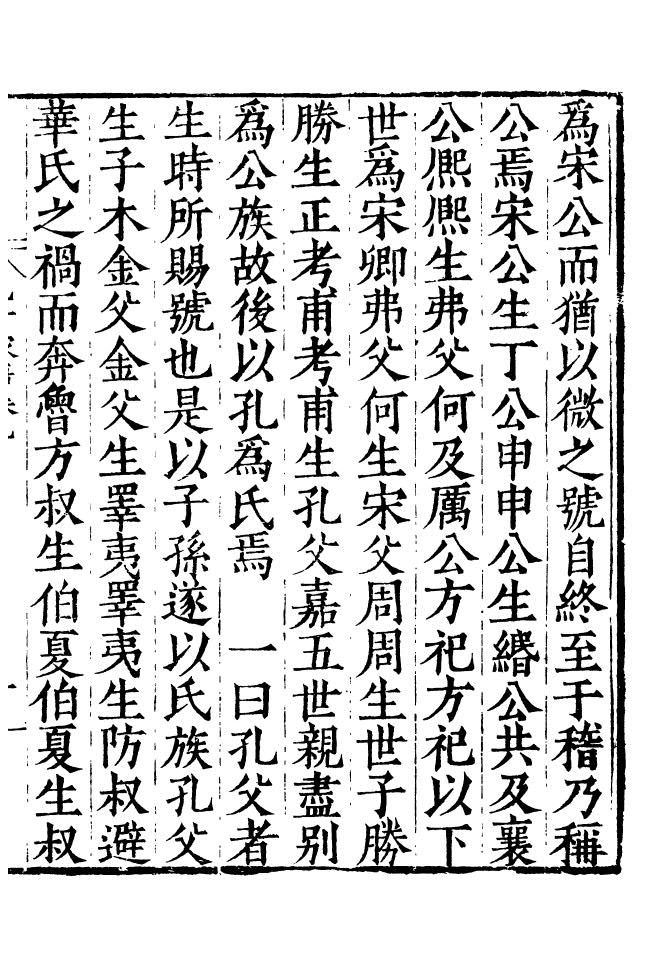 爲宋公而猶以微之號自終至于稽乃稱
公焉宋公生丁公申申公生緡公共及襄
公熈熈生弗父何及厲公方祀方祀以下
世爲宋卿弗父何生宋父周周生世子勝
勝生正考甫考甫生孔父嘉五世親盡别
爲公族故後以孔爲氏焉　一曰孔父者
生時所賜號也是以子孫遂以氏族孔父
生子木金父金父生睪夷睪夷生防叔避
華氏之禍而奔魯方叔生伯夏伯夏生叔